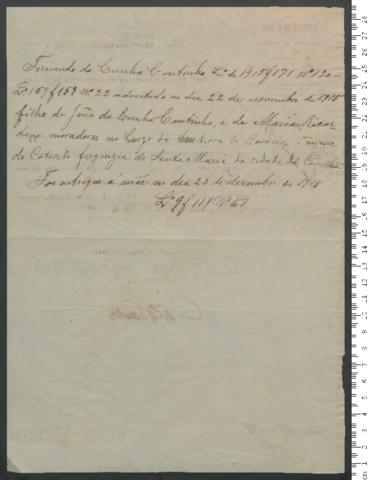 Fernando da Cunha Coutinho L.º de 1915 f 171 Nº 120
Lº 169 f 159 Nº 22 admitido no dia 22 de novembro de 1915
filho de João da Cunha Coutinho, e de Maria Ricar
moradores no Largo da Senhora do Rosario
do Outeiro freguezia de Santa Maria da cidade da Covilhã
Foi entregue á mãe no dia 23 de dezembro de 1915
Lº 9 f 117 Nº 51